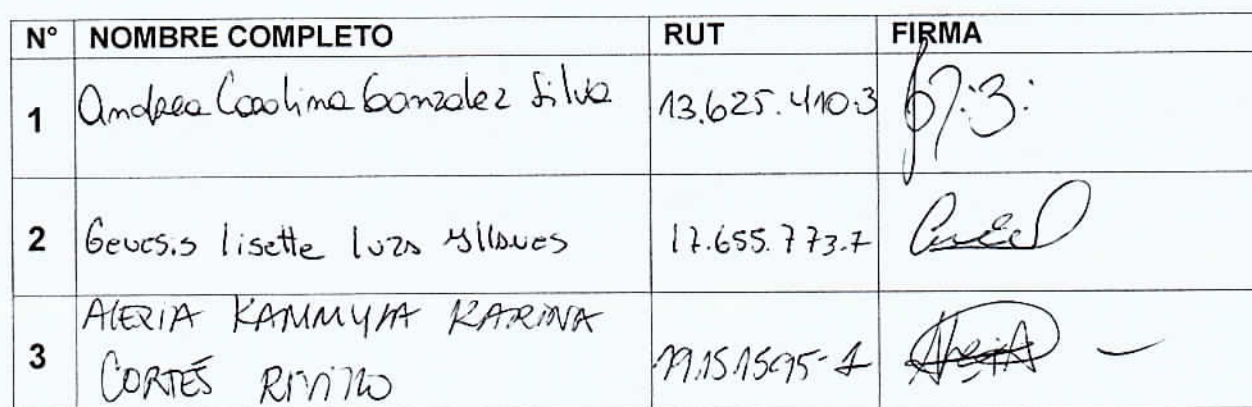 N° NOMBRE COMPLETO RUT FIRMA
1 Andrea Carolina Gonzalez Silva 13.625.410.3
2 Genesis lisette luza Yllanes 17.655.773.7
ALEXIA KAMMYLA KARINA
3 CORTÉS